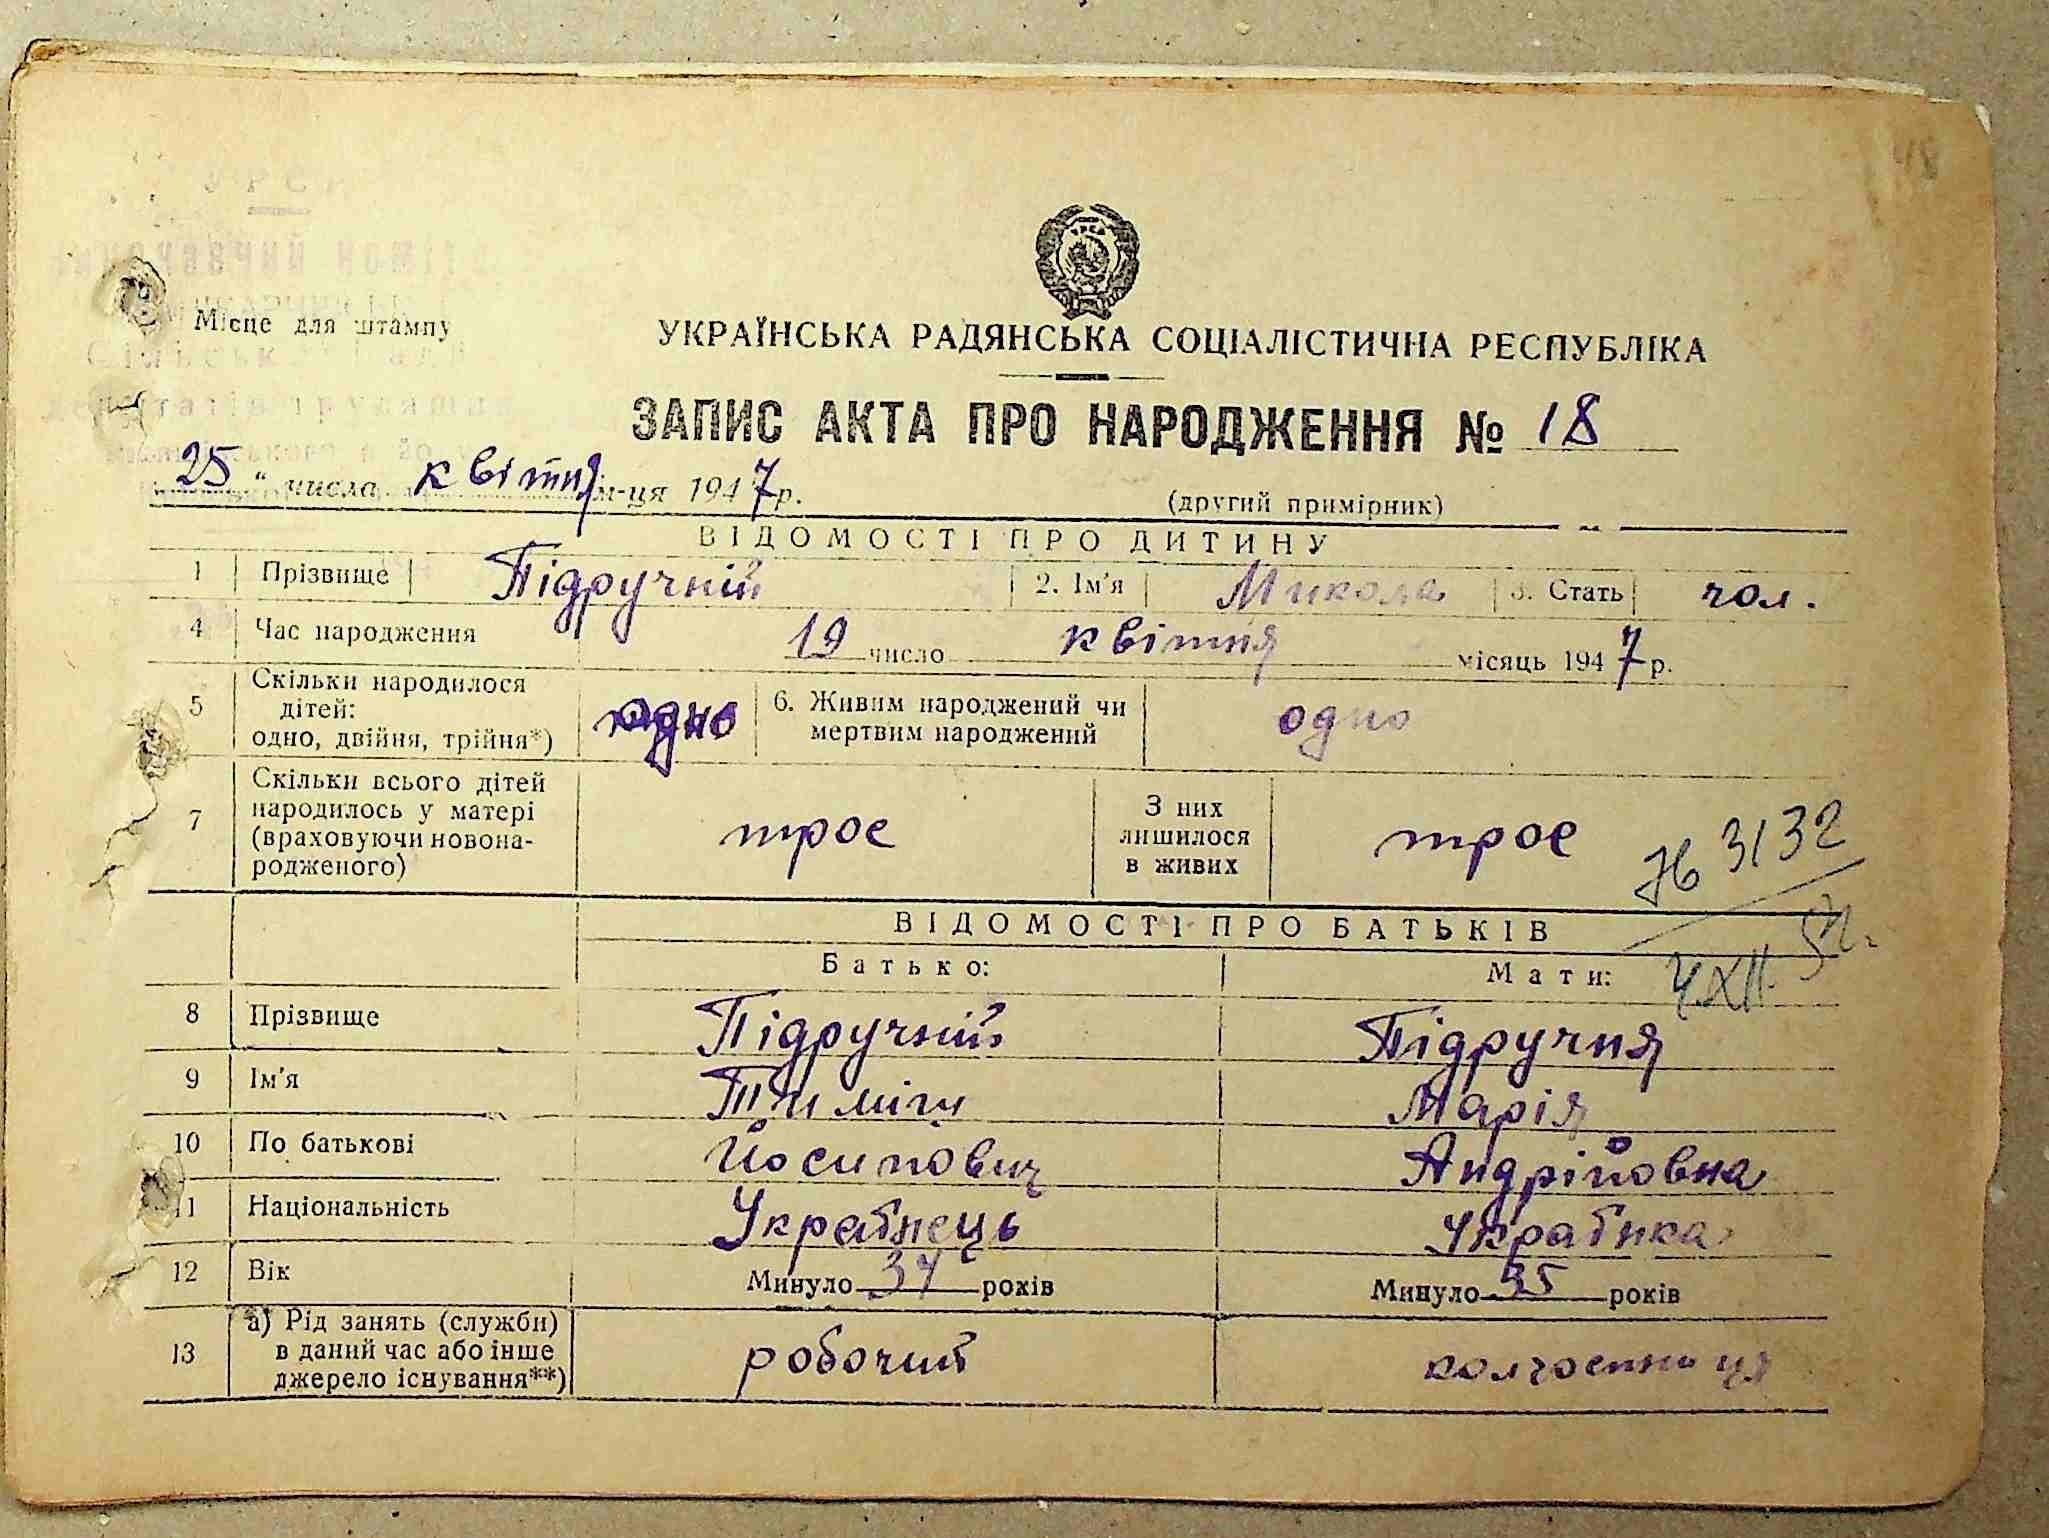 48
УРСР
Місце для штампу
УКРАЇНСЬКА РАДЯНСЬКА СОЦІАЛІСТИЧНА РЕСПУБЛІКА
ЗАПИС АКТА ПРО НАРОДЖЕННЯ № 18
25 " числа квітня м-ця 1947 р.
(другий примірник)
ВІДОМОСТІ ПРО ДИТИНУ
1 Прізвище Підручній 2. Ім'я Микола 3. Стать чол.
4 Час народження 19 число квітня місяць 1947 р.
5 Скільки народилося дітей: одно, двійня, трійня*) одно 6. Живим народжений чи мертвим народжений одно
7 Скільки всього дітей народилось у матері (враховуючи новона-родженого) трое З них лишилося в живих трое
№ 3132
4 XII. 52.
ВІДОМОСТІ ПРО БАТЬКІВ
Батько: Мати:
8 Прізвище Підручній Підручня
9 Ім'я Тиміш Марія
10 По батькові Йосипович Андрійовна
11 Національність Українець Українка
12 Вік Минуло 37 років Минуло 35 років
13 а) Рід занять (служби) в даний час або інше джерело існування**) робочий колгоспниця